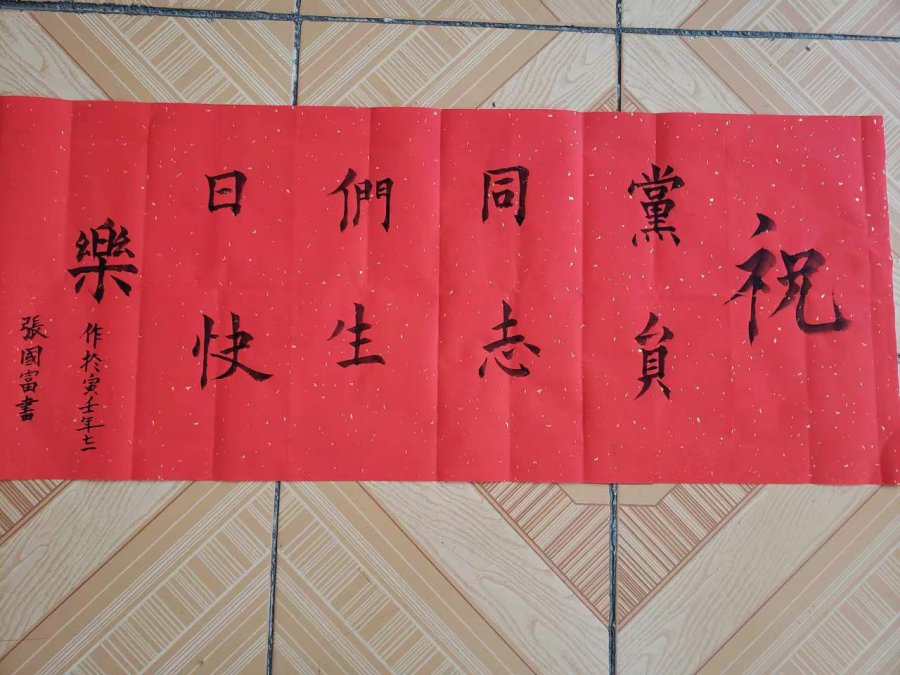 祝
黨員
同志
們生
日快
樂
作於寅壬年七一
張國富書